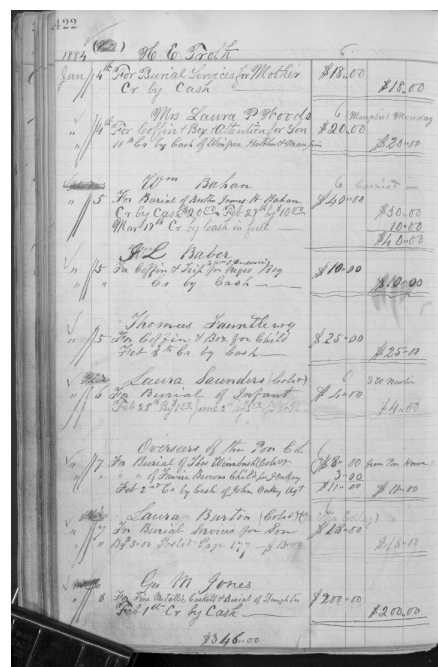 422
1884 H E Troth 6
Jan 4th For Burial Services for Mother $18.00
Cr by Cash $18.00
Mrs Laura P Woods 6
" 4th For Coffin & Box Attention for Son $20.00
10th Cr by Cash of $20.00
Wm Bahan 6
" 5 For Burial of James H Bahan $40.00
Cr by Cash $20.00 Feb 27th by $10.00 $30.00
Mar 17th Cr by Cash in full 10.00
$40.00
L Baber
" 5 For Coffin & for Negro Boy $10.00
" Cr by Cash $10.00
Thomas Fauntleroy
" 5 For Coffin & Box for Child $25.00
Feb 8th Cr by Cash $25.00
Laura Saunders (Cold) 6
" 6 For Burial of Infant $4.00
Feb 25th By June 2nd $4.00
Overseers of the Poor C L
" 7 For Burial of Thos (Cold) $8.00 from Poor House
" " of Fannie Browns Child for 3.00
Feb 2nd Cr by Cash of John Oakey Agt $11.00 $11.00
Laura Barton (Cold)
" 7 For Burial Services for Son $18.00
Posted Page 127
Geo M Jones
" 8 For Fine Metallic Casket & Burial of Daughter $200.00
Feb 1st Cr by Cash $200.00
$346.00